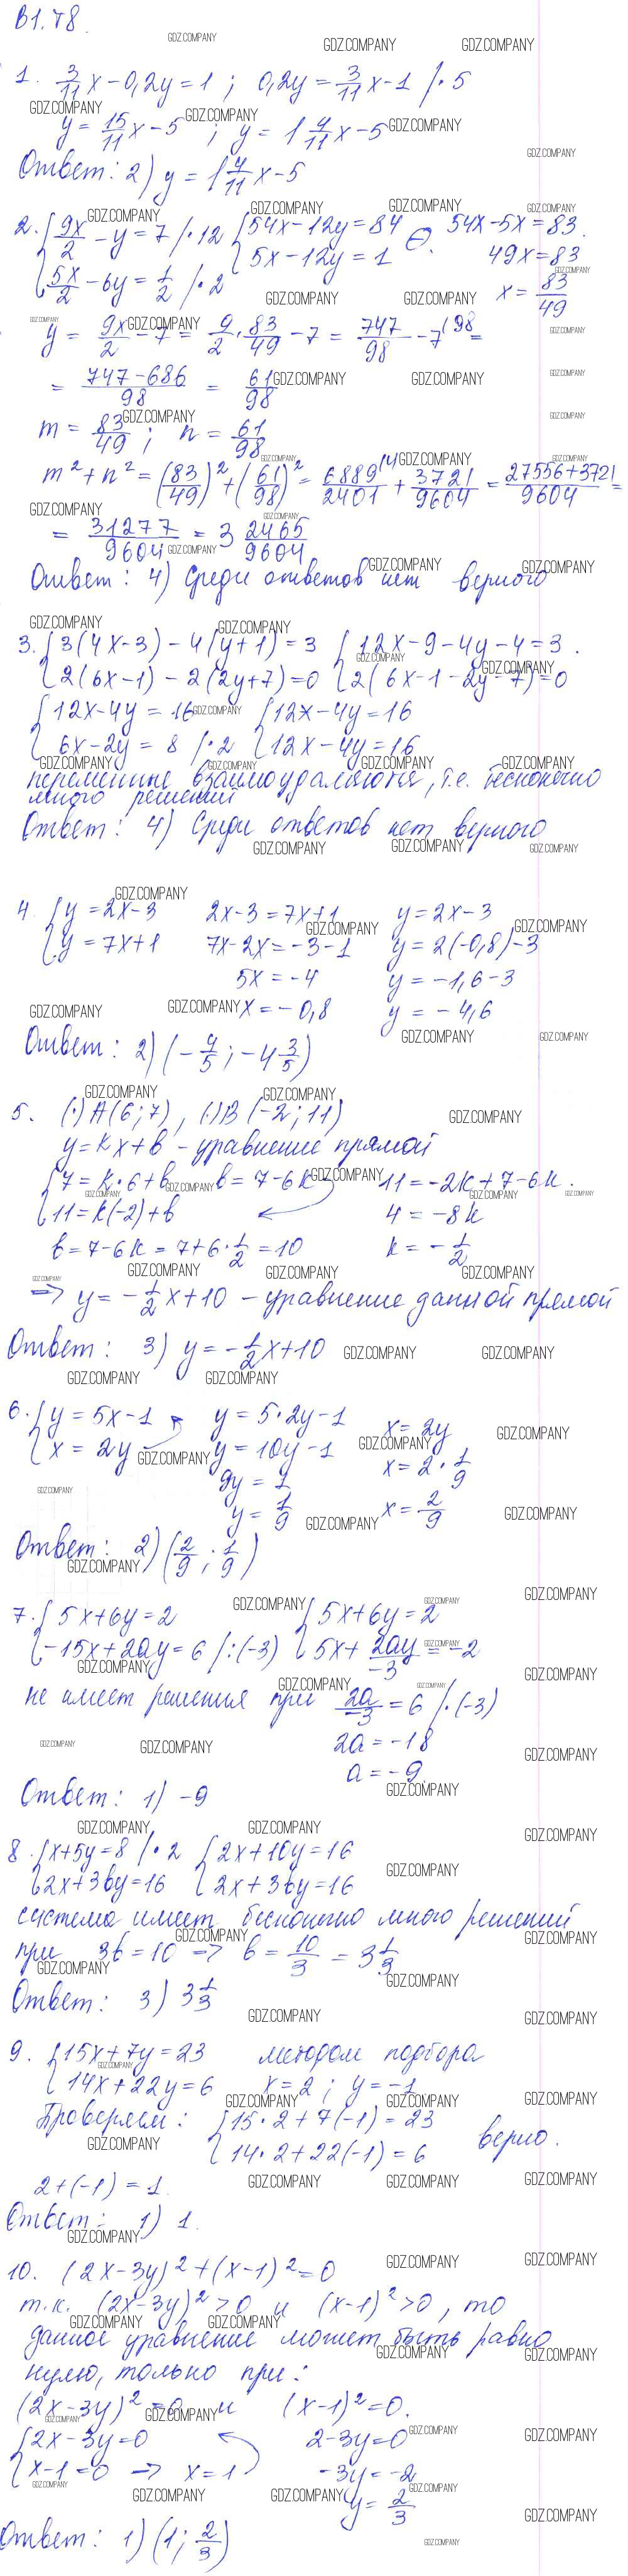 В1.Т8.
1. 3/11 x - 0,2y = 1 ; 0,2y = 3/11 x - 1 /· 5
y = 15/11 x - 5 ; y = 1 4/11 x - 5
Ответ: 2) y = 1 4/11 x - 5
2. { 9x/2 - y = 7 /· 12 { 54x - 12y = 84 ⊖. 54x - 5x = 83.
{ 5x/2 - 6y = 1/2 /· 2 { 5x - 12y = 1 49x = 83
x = 83/49
y = 9x/2 - 7 = 9/2 · 83/49 - 7 = 747/98 - 7^(98 =
= 747-686/98 = 61/98
m = 83/49 ; n = 61/98
m² + n² = (83/49)² + (61/98)² = 6889^(4/2401 + 3721/9604 = 27556+3721/9604 =
= 31277/9604 = 3 2465/9604
Ответ: 4) Среди ответов нет верного
3. { 3(4x-3) - 4(y+1) = 3 { 12x - 9 - 4y - 4 = 3.
{ 2(6x-1) - 2(2y+7) = 0 { 2(6x - 1 - 2y - 7) = 0
{ 12x - 4y = 16 { 12x - 4y = 16
{ 6x - 2y = 8 /· 2 { 12x - 4y = 16
переменные взаимоудаляются, т.е. бесконечно
много решений
Ответ: 4) Среди ответов нет верного
4. { y = 2x - 3 2x - 3 = 7x + 1 y = 2x - 3
{ y = 7x + 1 7x - 2x = -3 - 1 y = 2(-0,8) - 3
5x = -4 y = -1,6 - 3
x = -0,8 y = -4,6
Ответ: 2) (-4/5 ; -4 3/5)
5. (·) A(6;7), (·) B(-2;11)
y = kx + b - уравнение прямой
{ 7 = k·6 + b b = 7 - 6k 11 = -2k + 7 - 6k.
{ 11 = k(-2) + b 4 = -8k
b = 7 - 6k = 7 + 6·1/2 = 10 k = -1/2
=> y = -1/2 x + 10 - уравнение данной прямой
Ответ: 3) y = -1/2 x + 10
6. { y = 5x - 1 y = 5·2y - 1 x = 2y
{ x = 2y y = 10y - 1 x = 2 · 1/9
9y = 1
y = 1/9 x = 2/9
Ответ: 2) (2/9 ; 1/9)
7. { 5x + 6y = 2 { 5x + 6y = 2
{ -15x + 2ay = 6 /:(-3) { 5x + 2ay/-3 = -2
не имеет решения при 2a/-3 = 6 /·(-3)
2a = -18
a = -9
Ответ: 1) -9
8. { x + 5y = 8 /· 2 { 2x + 10y = 16
{ 2x + 3by = 16 { 2x + 3by = 16
система имеет бесконечно много решений
при 3b = 10 => b = 10/3 = 3 1/3
Ответ: 3) 3 1/3
9. { 15x + 7y = 23 методом подбора
{ 14x + 22y = 6 x = 2 ; y = -1
Проверяем: { 15·2 + 7(-1) = 23
{ 14·2 + 22(-1) = 6 верно.
2 + (-1) = 1.
Ответ: 1) 1.
10. (2x-3y)² + (x-1)² = 0
т.к. (2x-3y)² > 0 и (x-1)² > 0, то
данное уравнение может быть равно
нулю, только при:
(2x-3y)² = 0 и (x-1)² = 0.
{ 2x - 3y = 0 2 - 3y = 0
{ x - 1 = 0 -> x = 1 -3y = -2
y = 2/3
Ответ: 1) (1; 2/3)
GDZ.COMPANY